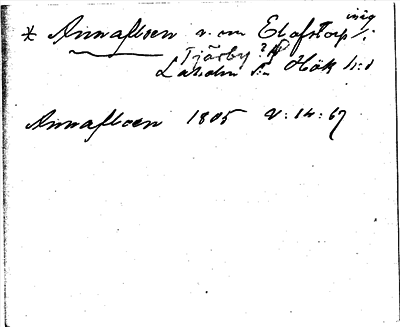 * Annafloen n. om Elofstorp
Tjärby ?
Laholm s:n Hök h:d
Annafloen 1805 V:14:67